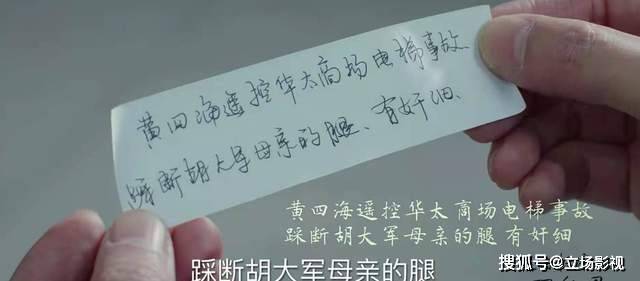 黄四海遥控华太商场电梯事故
踩断胡大军母亲的腿、有奸细、
黄四海遥控华太商场电梯事故
踩断胡大军母亲的腿 有奸细
踩断胡大军母亲的腿
搜狐号@立场影视